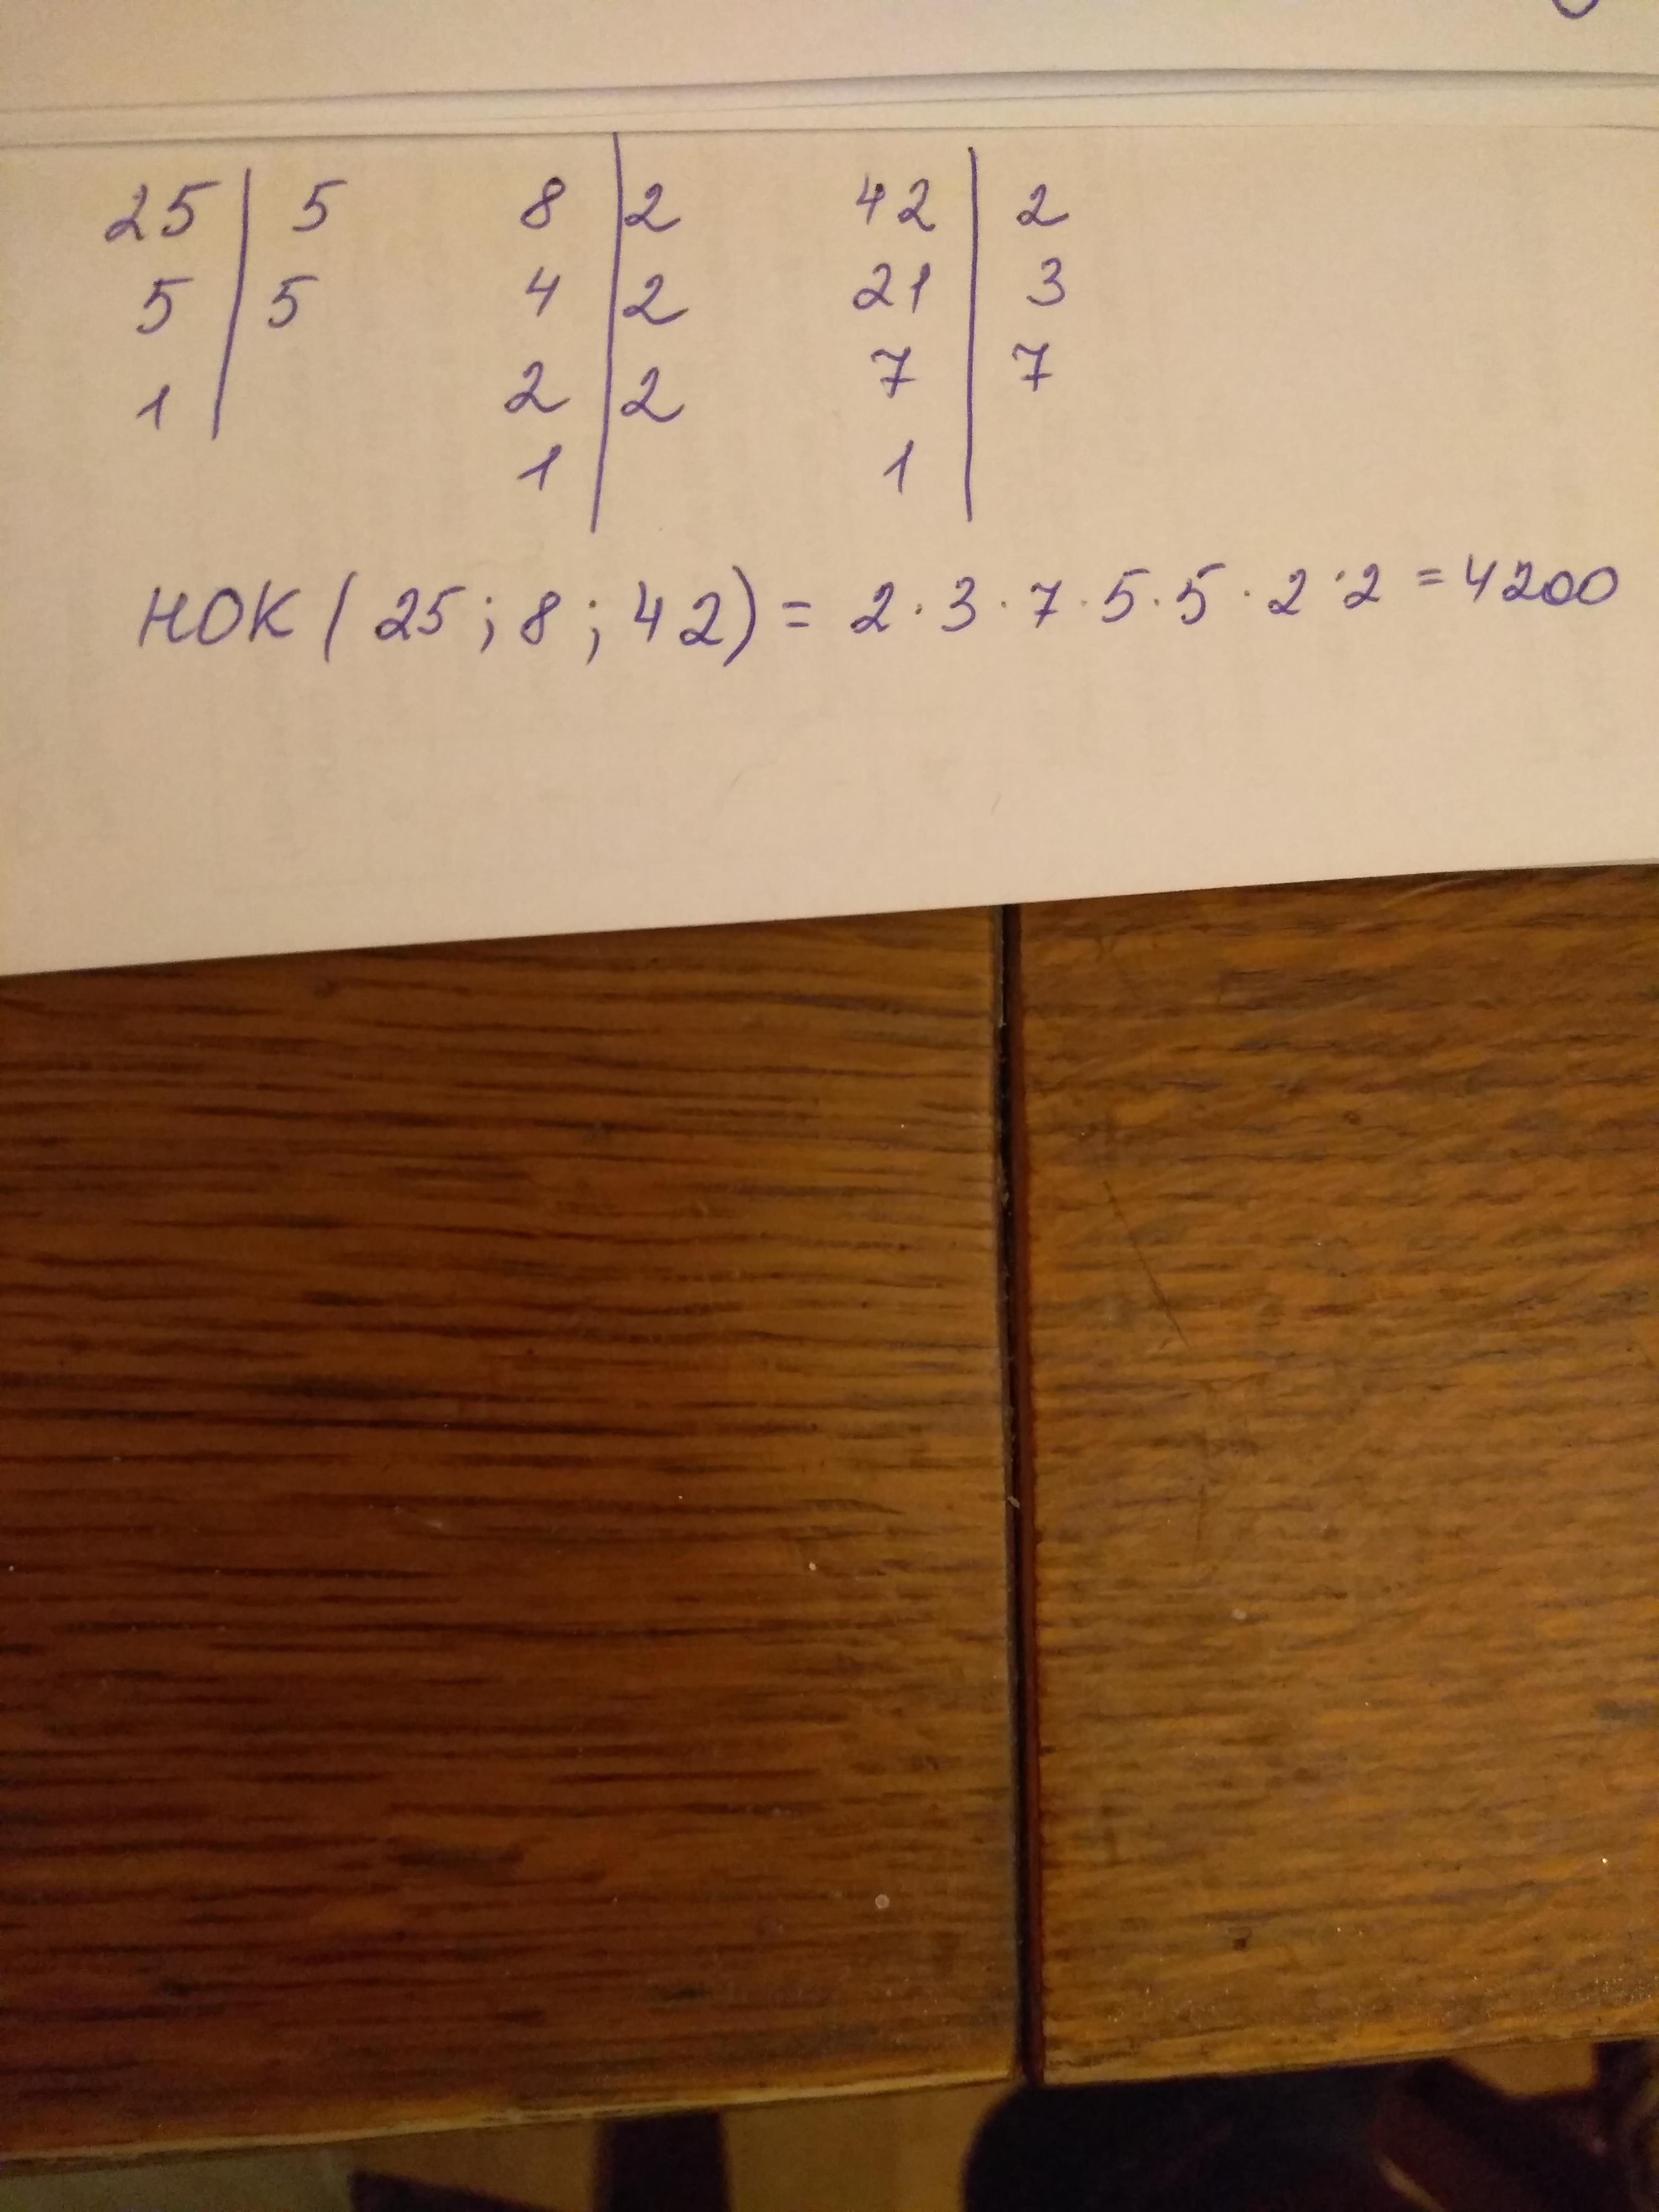 25 | 5 8 | 2 42 | 2
5 | 5 4 | 2 21 | 3
1 | 2 | 2 7 | 7
1 | 1 |
НОК ( 25 ; 8 ; 42 ) = 2 · 3 · 7 · 5 · 5 · 2 · 2 = 4200